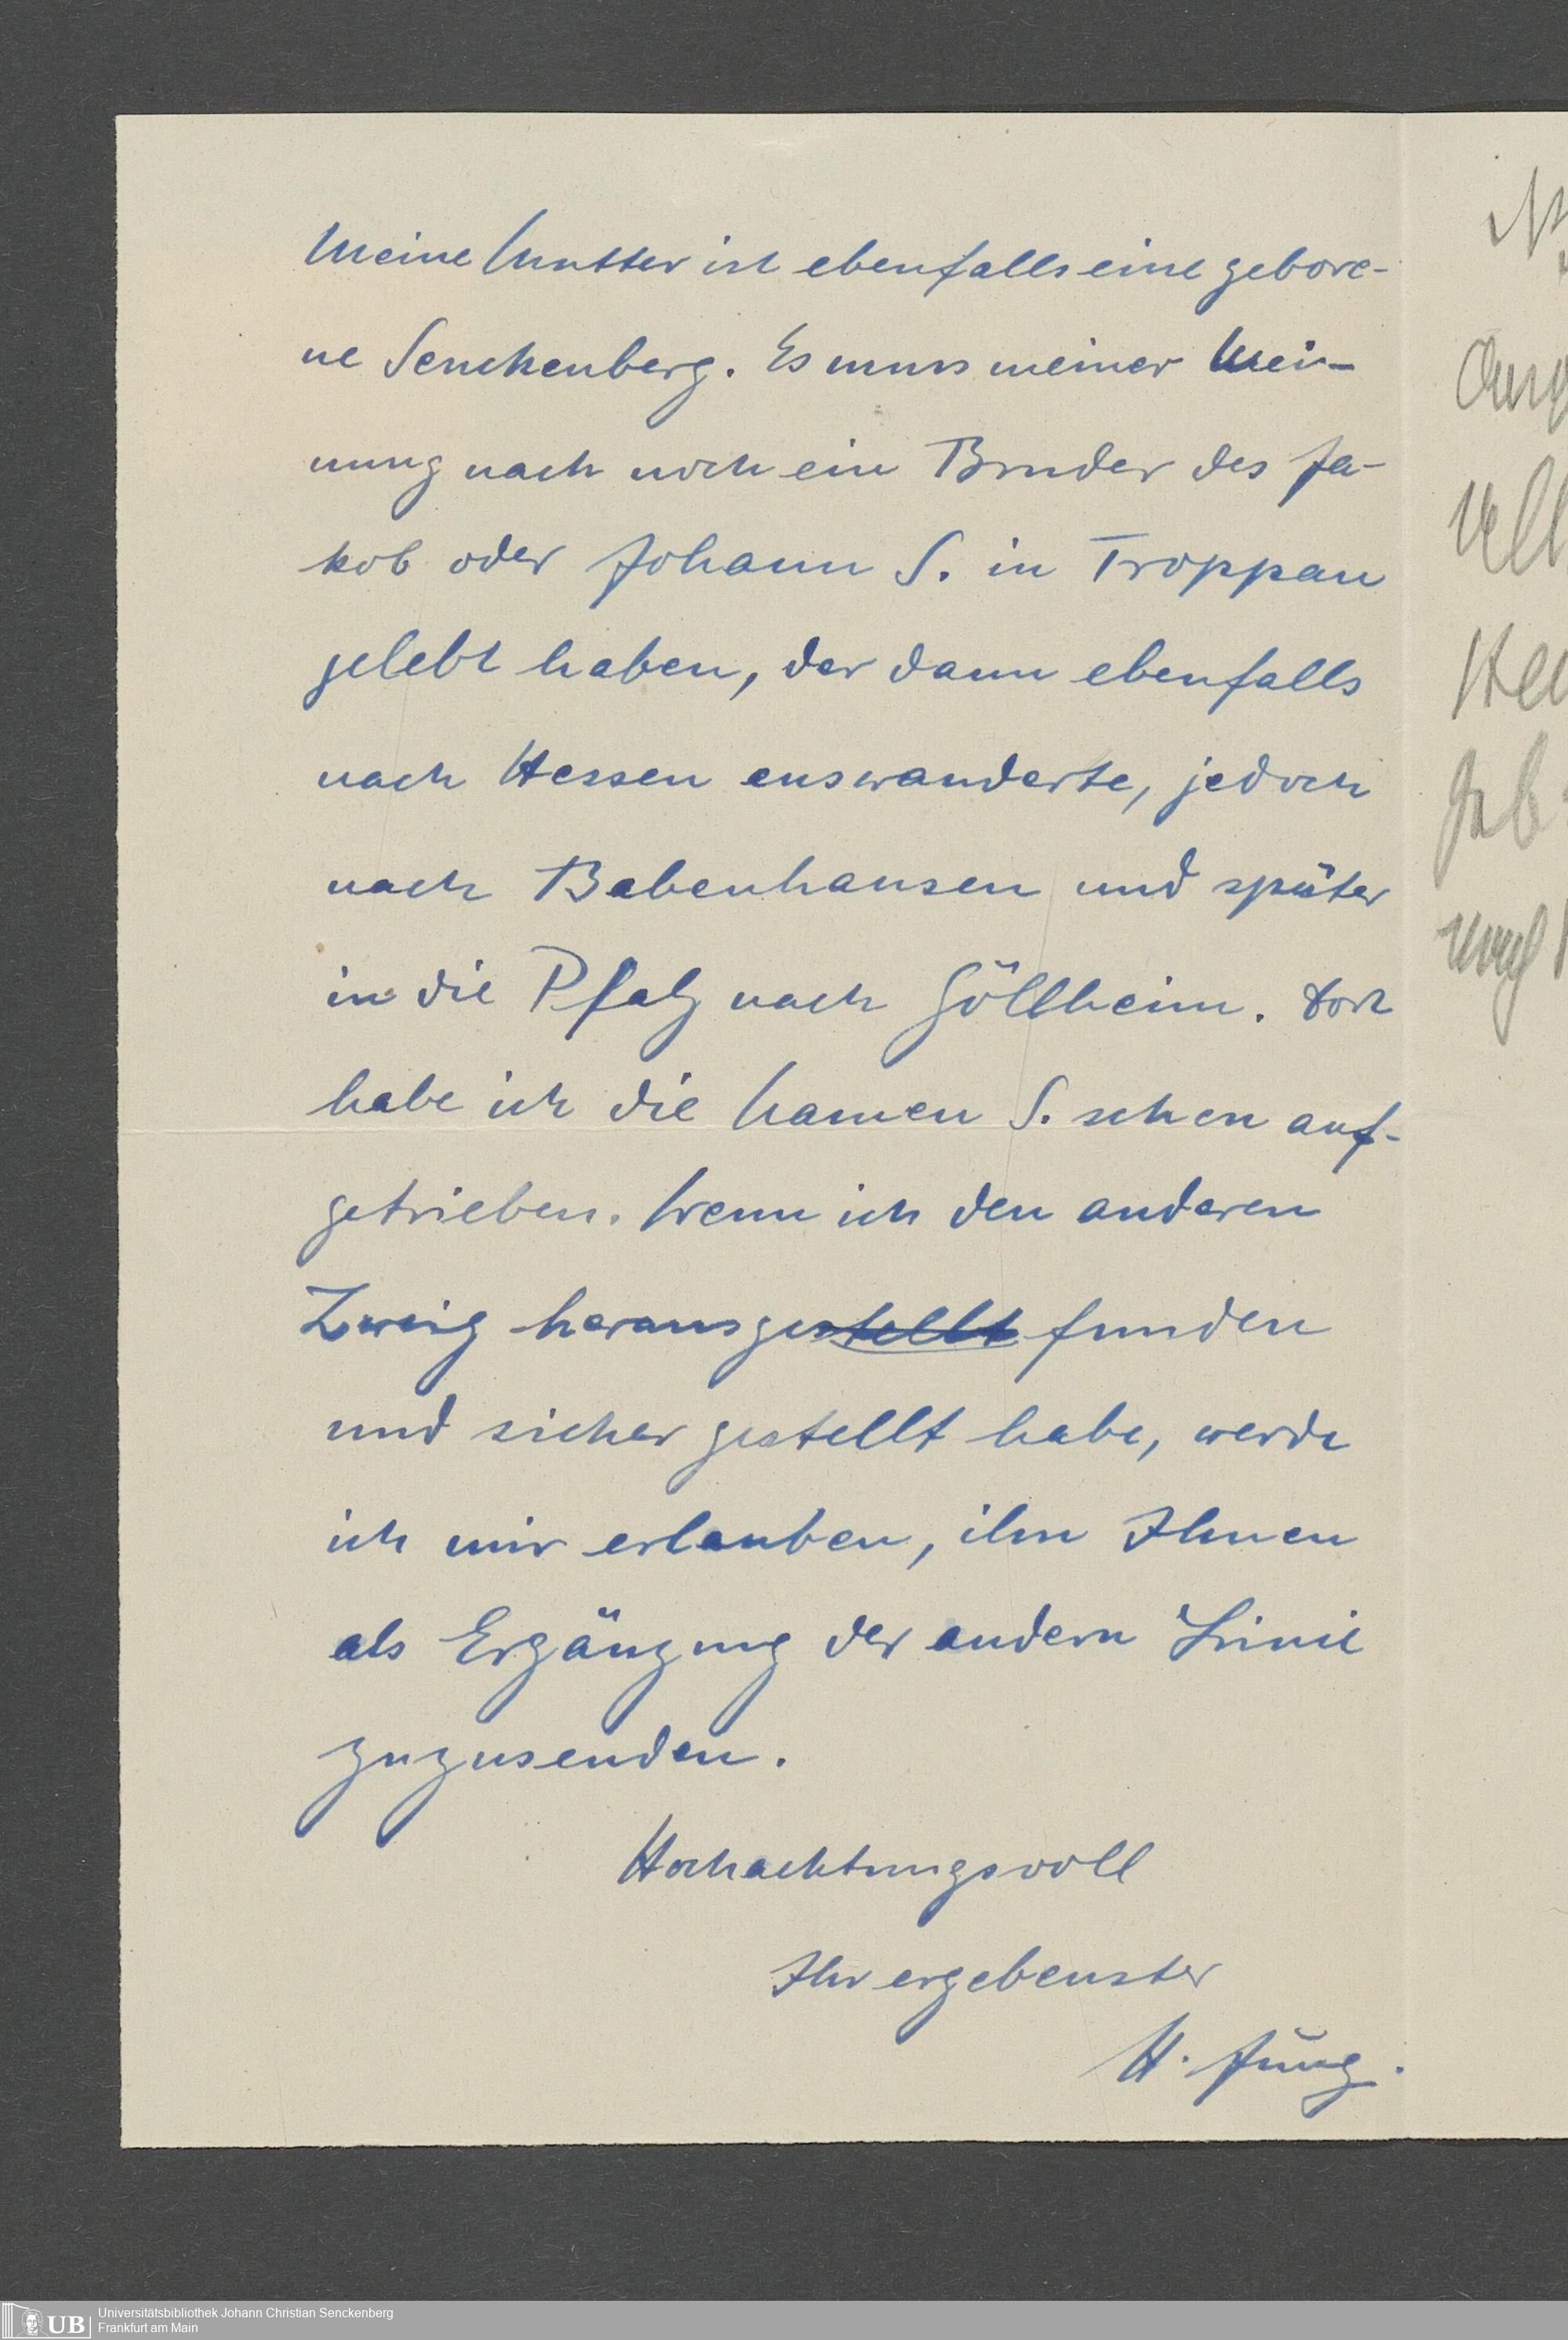 Meine Mutter ist ebenfalls eine gebore-
ne Senckenberg. Es muss meiner Mei-
nung nach noch ein Bruder des Ja-
kob oder Johann S. in Troppau
gelebt haben, der dann ebenfalls
nach Hessen auswanderte, jedoch
nach Babenhausen und später
in die Pfalz nach Göllheim. Dort
habe ich die Namen S. schon auf-
getrieben. Wenn ich den anderen
Zweig herausgestellt funden
und sicher gestellt habe, werde
ich mir erlauben, ihn Ihnen
als Ergänzung der andern Linie
zuzusenden.
Hochachtungsvoll
Ihr ergebenster
H. Jung.
UB
Universitätsbibliothek Johann Christian Senckenberg
Frankfurt am Main